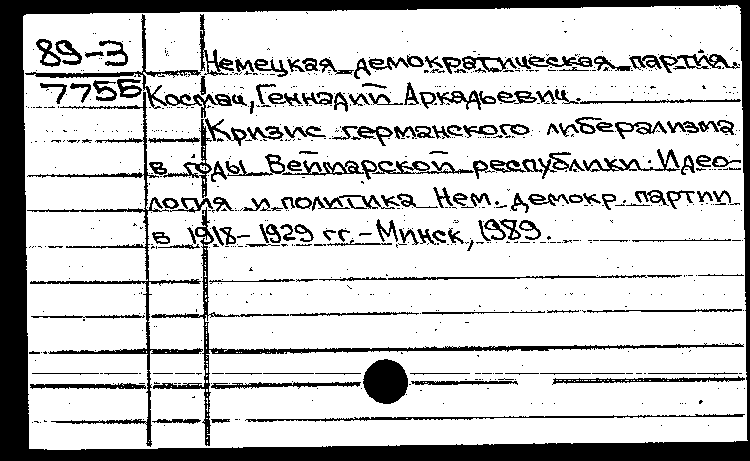 89-3
7755
Немецкая демократическая партия.
Космач, Геннадий Аркадьевич.
Кризис германского либерализма
в годы Веймарской республики: Идео-
логия и политика Нем. демокр. партии
в 1918-1929 гг.-Минск, 1989.